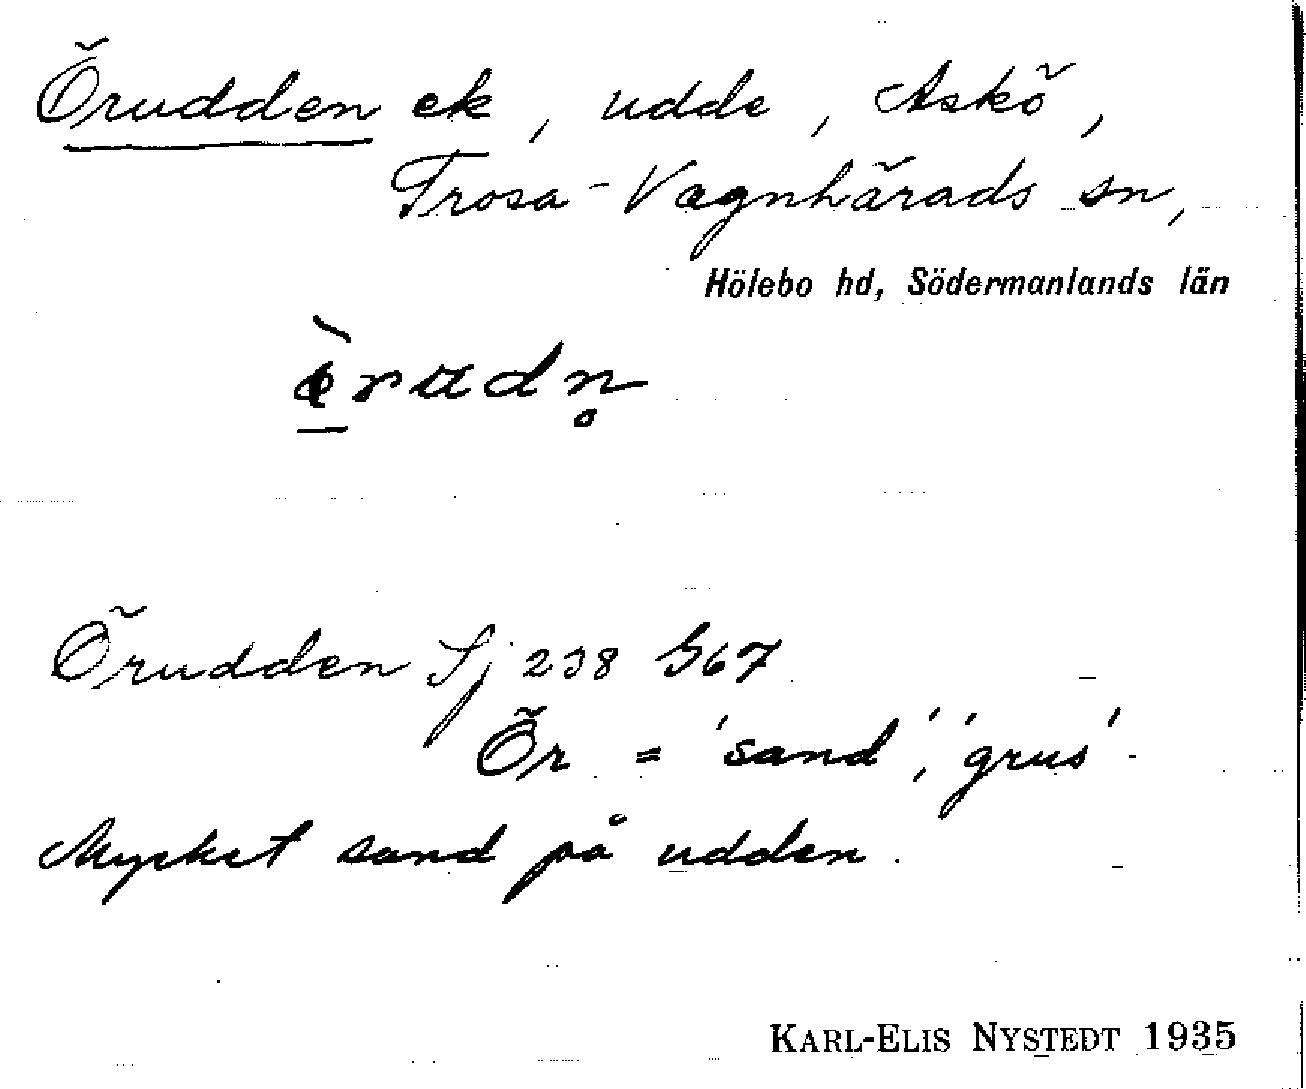 Örudden ek, udde, Askö,
Trosa-Vagnhärads sn,
Hölebo hd, Södermanlands län
Örudden Sj 238 G67
Ör = 'sand', 'grus'.
Mycket sand på udden.
KARL-ELIS NYSTEDT 1935